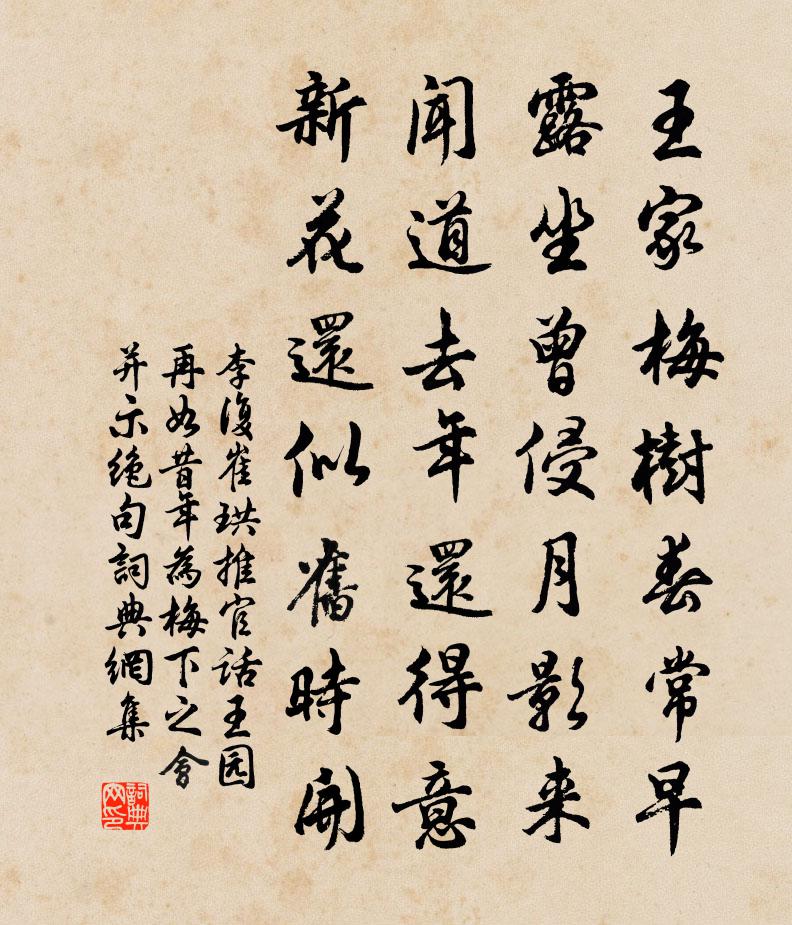 王家梅樹春常早
露坐曾侵月影来
聞道去年還得意
新花還似舊時開
李復崔珙推官話王园
再如昔年為梅下之會
并示絶句詞典網集
詞典
网印